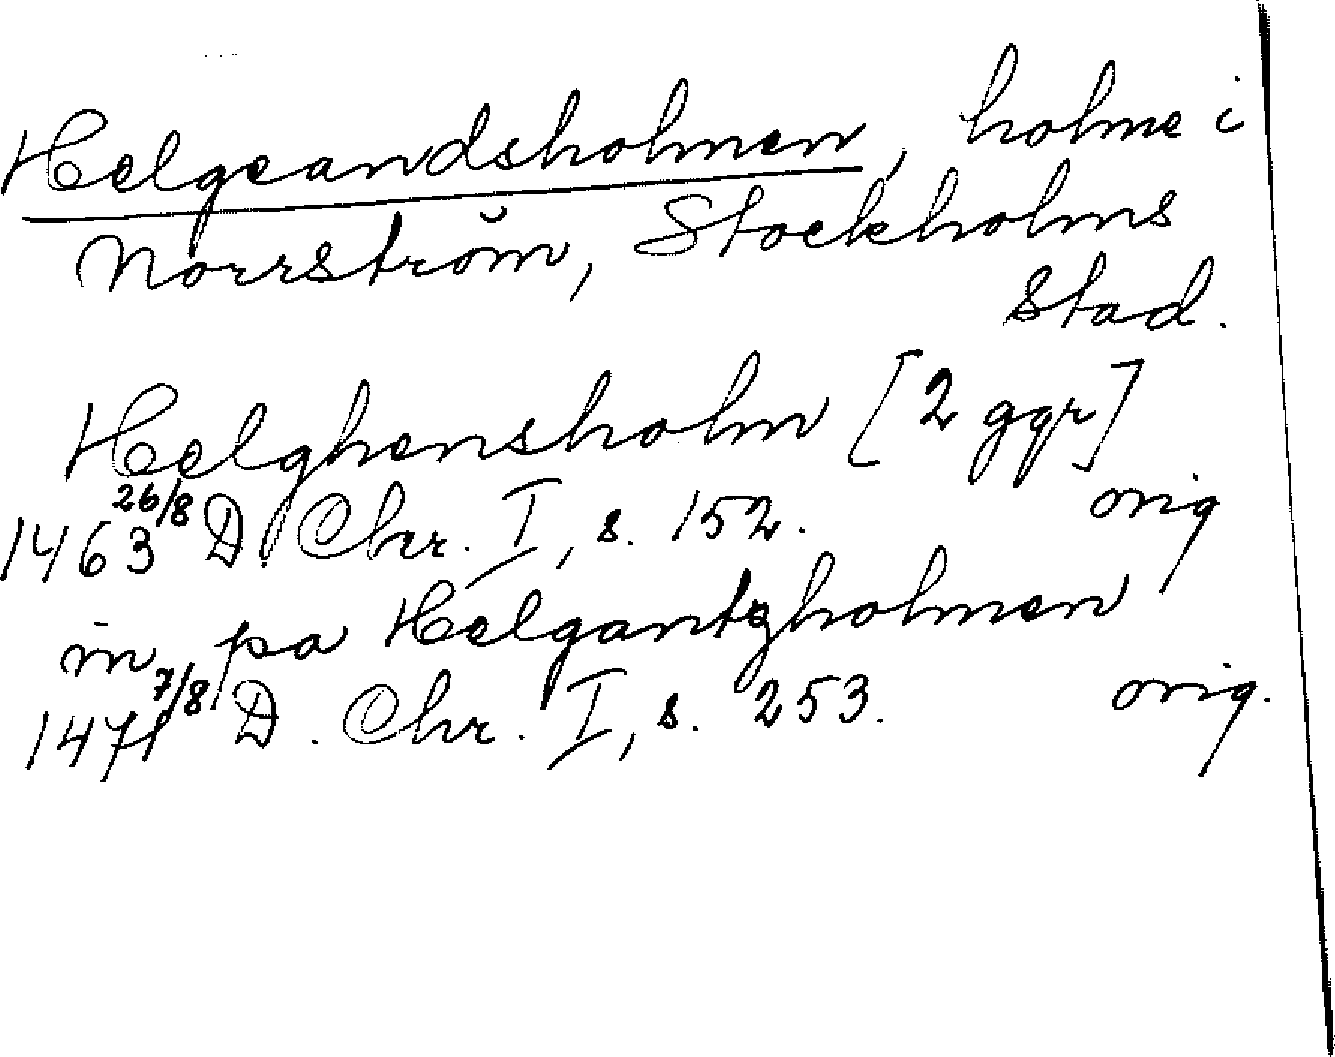 Helgeandsholmen, holme i
Norrström, Stockholms
stad.
Helghensholm [2 ggr]
1463 26/8 D. Chr. I, s. 152. orig
in pa Helgantzholmen
1471 7/8 D. Chr. I, s. 253. orig.